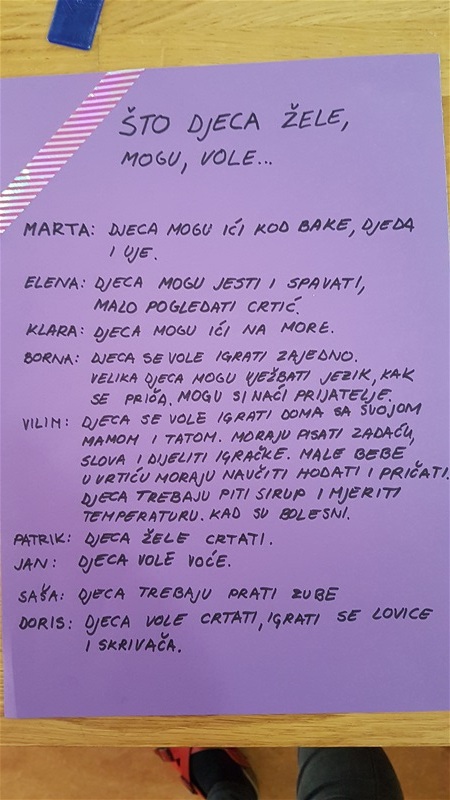 ŠTO DJECA ŽELE,
MOGU, VOLE...
MARTA: DJECA MOGU IĆI KOD BAKE, DJEDA
I UJE.
ELENA: DJECA MOGU JESTI I SPAVATI,
MALO POGLEDATI CRTIĆ.
KLARA: DJECA MOGU IĆI NA MORE.
BORNA: DJECA SE VOLE IGRATI ZAJEDNO.
VELIKA DJECA MOGU VJEŽBATI JEZIK, KAK
SE PRIČA. MOGU SI NAĆI PRIJATELJE.
VILIM: DJECA SE VOLE IGRATI DOMA SA SVOJOM
MAMOM I TATOM. MORAJU PISATI ZADAĆU,
SLOVA I DIJELITI IGRAČKE. MALE BEBE
U VRTIĆU MORAJU NAUČITI HODATI I PRIČATI.
DJECA TREBAJU PITI SIRUP I MJERITI
TEMPERATURU. KAD SU BOLESNI.
PATRIK: DJECA ŽELE CRTATI.
JAN: DJECA VOLE VOĆE.
SAŠA: DJECA TREBAJU PRATI ZUBE
DORIS: DJECA VOLE CRTATI, IGRATI SE LOVICE
I SKRIVAČA.